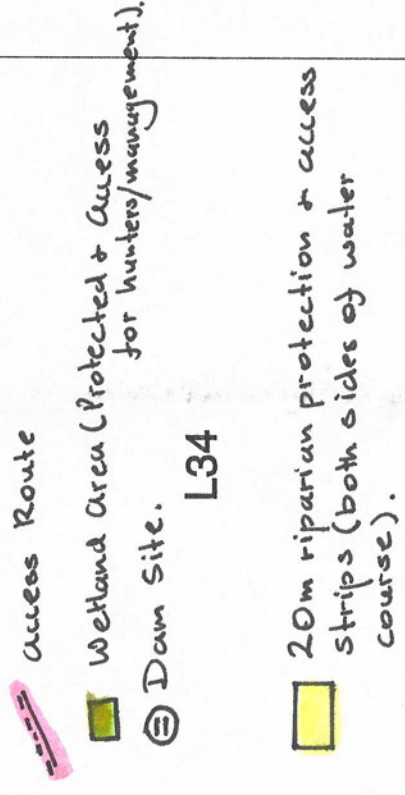 access Route
Wetland area (Protected & access
for hunters/management).
Dam Site.
L34
20m riparian protection & access
strips (both sides of water
course).